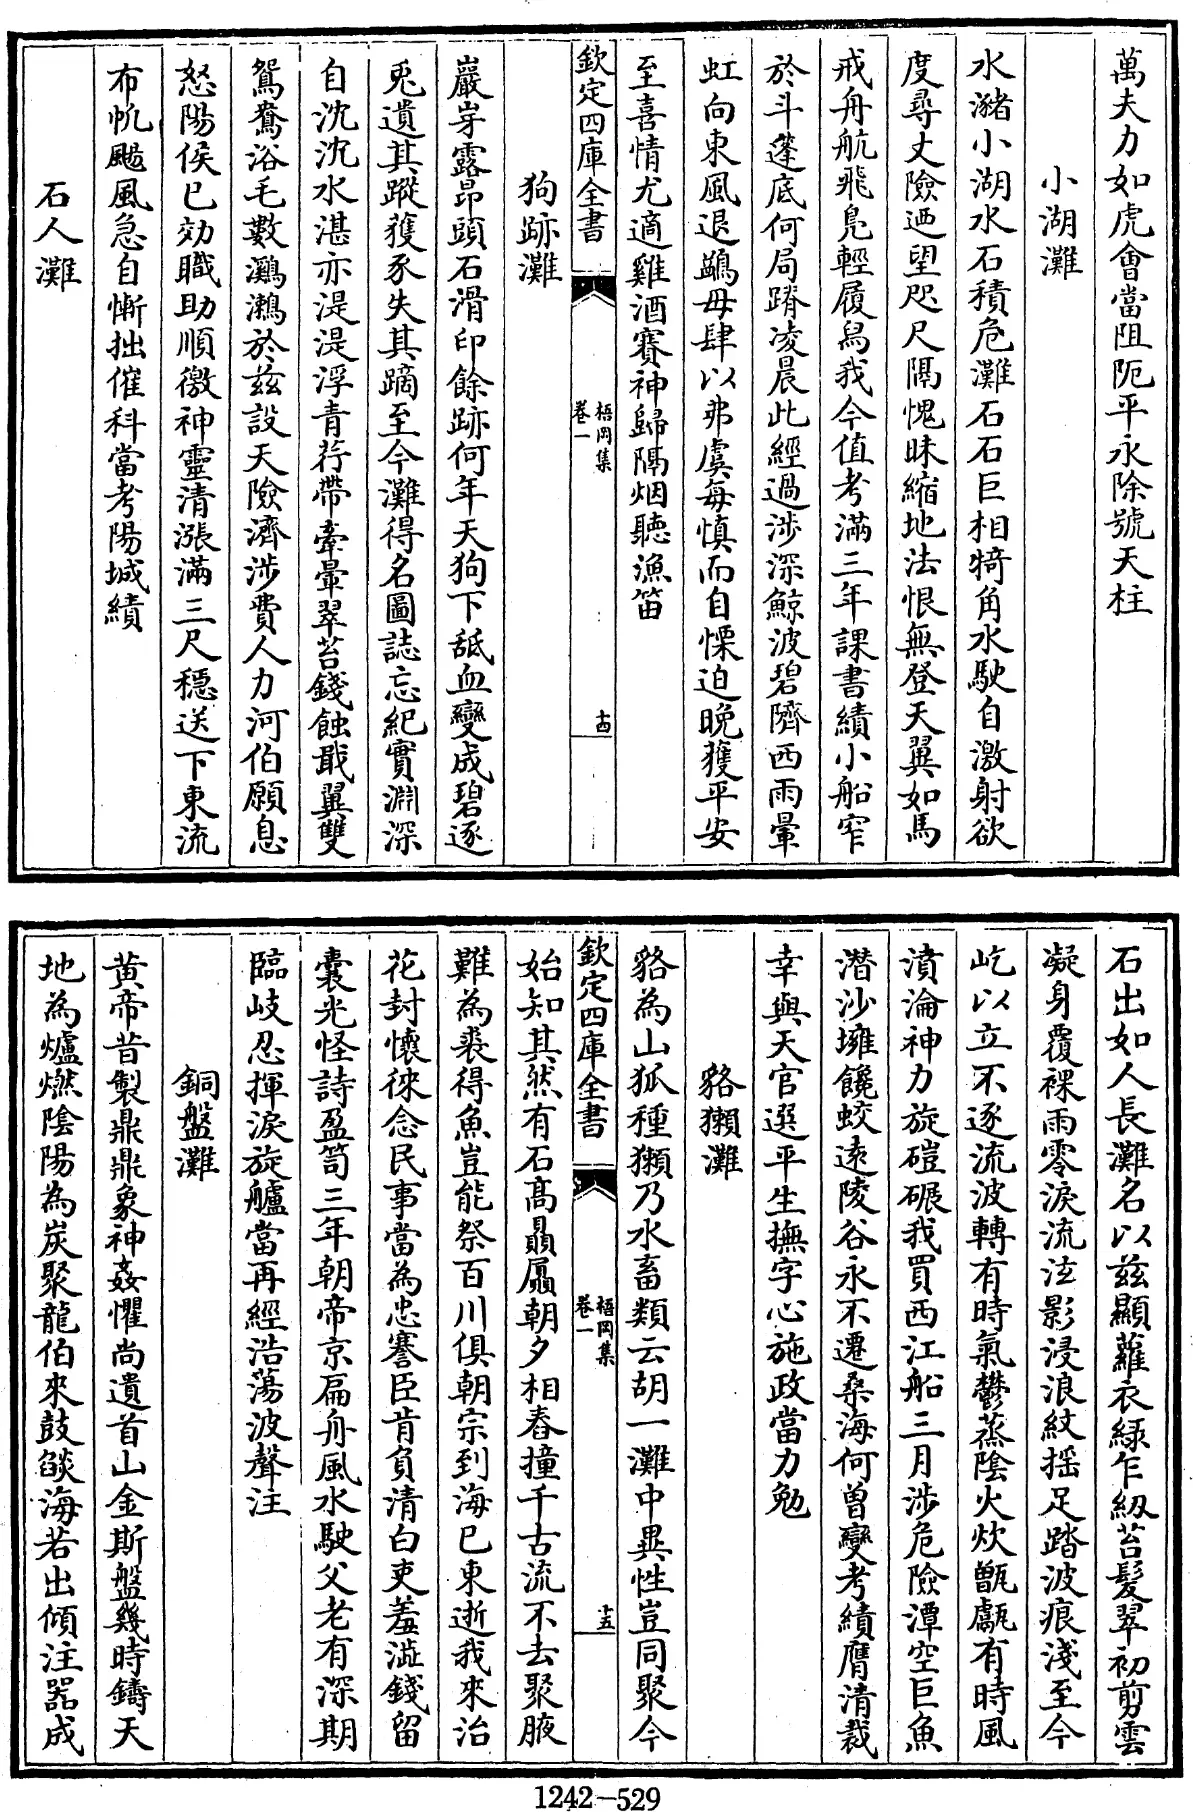 萬夫力如虎會當阻阨平永除號天柱
小湖灘
水瀦小湖水石積危灘石石巨相犄角水駛自激射欲
度尋丈險迺望咫尺隔愧昧縮地法恨無登天翼如馬
戒舟航飛鳧輕履舄我今值考滿三年課書績小船窄
於斗蓬底何局蹐凌晨此經過涉深鯨波碧隮西雨暈
虹向東風退鷁毋肆以弗虞每慎而自慄迫晚獲平安
至喜情尤適雞酒賽神歸隔烟聽漁笛
欽定四庫全書
梧岡集
卷一
十四
狗跡灘
巖穿露昂頭石滑印餘跡何年天狗下舐血變成碧逐
兎遺其蹤獲豕失其蹢至今灘得名圖誌忘紀實淵深
自沈沈水湛亦湜湜浮青荇帶牽暈翠苔錢蝕戢翼雙
鴛鴦浴毛數鸂鶒於兹設天險濟涉費人力河伯願息
怒陽侯已効職助順徼神靈清漲滿三尺穩送下東流
布帆颿風急自慚拙催科當考陽城績
石人灘
石出如人長灘名以兹顯蘿衣緑乍紉苔髮翠初剪雲
凝身覆裸雨零淚流泫影浸浪紋揺足踏波痕淺至今
屹以立不逐流波轉有時氣鬱蒸陰火炊甑甗有時風
濆淪神力旋磑碾我買西江船三月涉危險潭空巨魚
潛沙擁饞蛟逺陵谷永不遷桑海何曽變考績膺清裁
幸與天官選平生撫字心施政當力勉
貉獺灘
貉為山狐種獺乃水畜類云胡一灘中異性豈同聚今
欽定四庫全書
梧岡集
卷一
十五
始知其然有石髙贔屭朝夕相舂撞千古流不去聚腋
難為裘得魚豈能祭百川俱朝宗到海已東逝我來治
花封懷徠念民事當為忠謇臣肯負清白吏羞澁錢留
囊光怪詩盈笥三年朝帝京扁舟風水駛父老有深期
臨岐忍揮淚旋艫當再經浩蕩波聲注
銅盤灘
黄帝昔製鼎鼎象神姦懼尚遺首山金斯盤幾時鑄天
地為爐燃陰陽為炭聚龍伯來鼓燄海若出傾注器成
1242—529